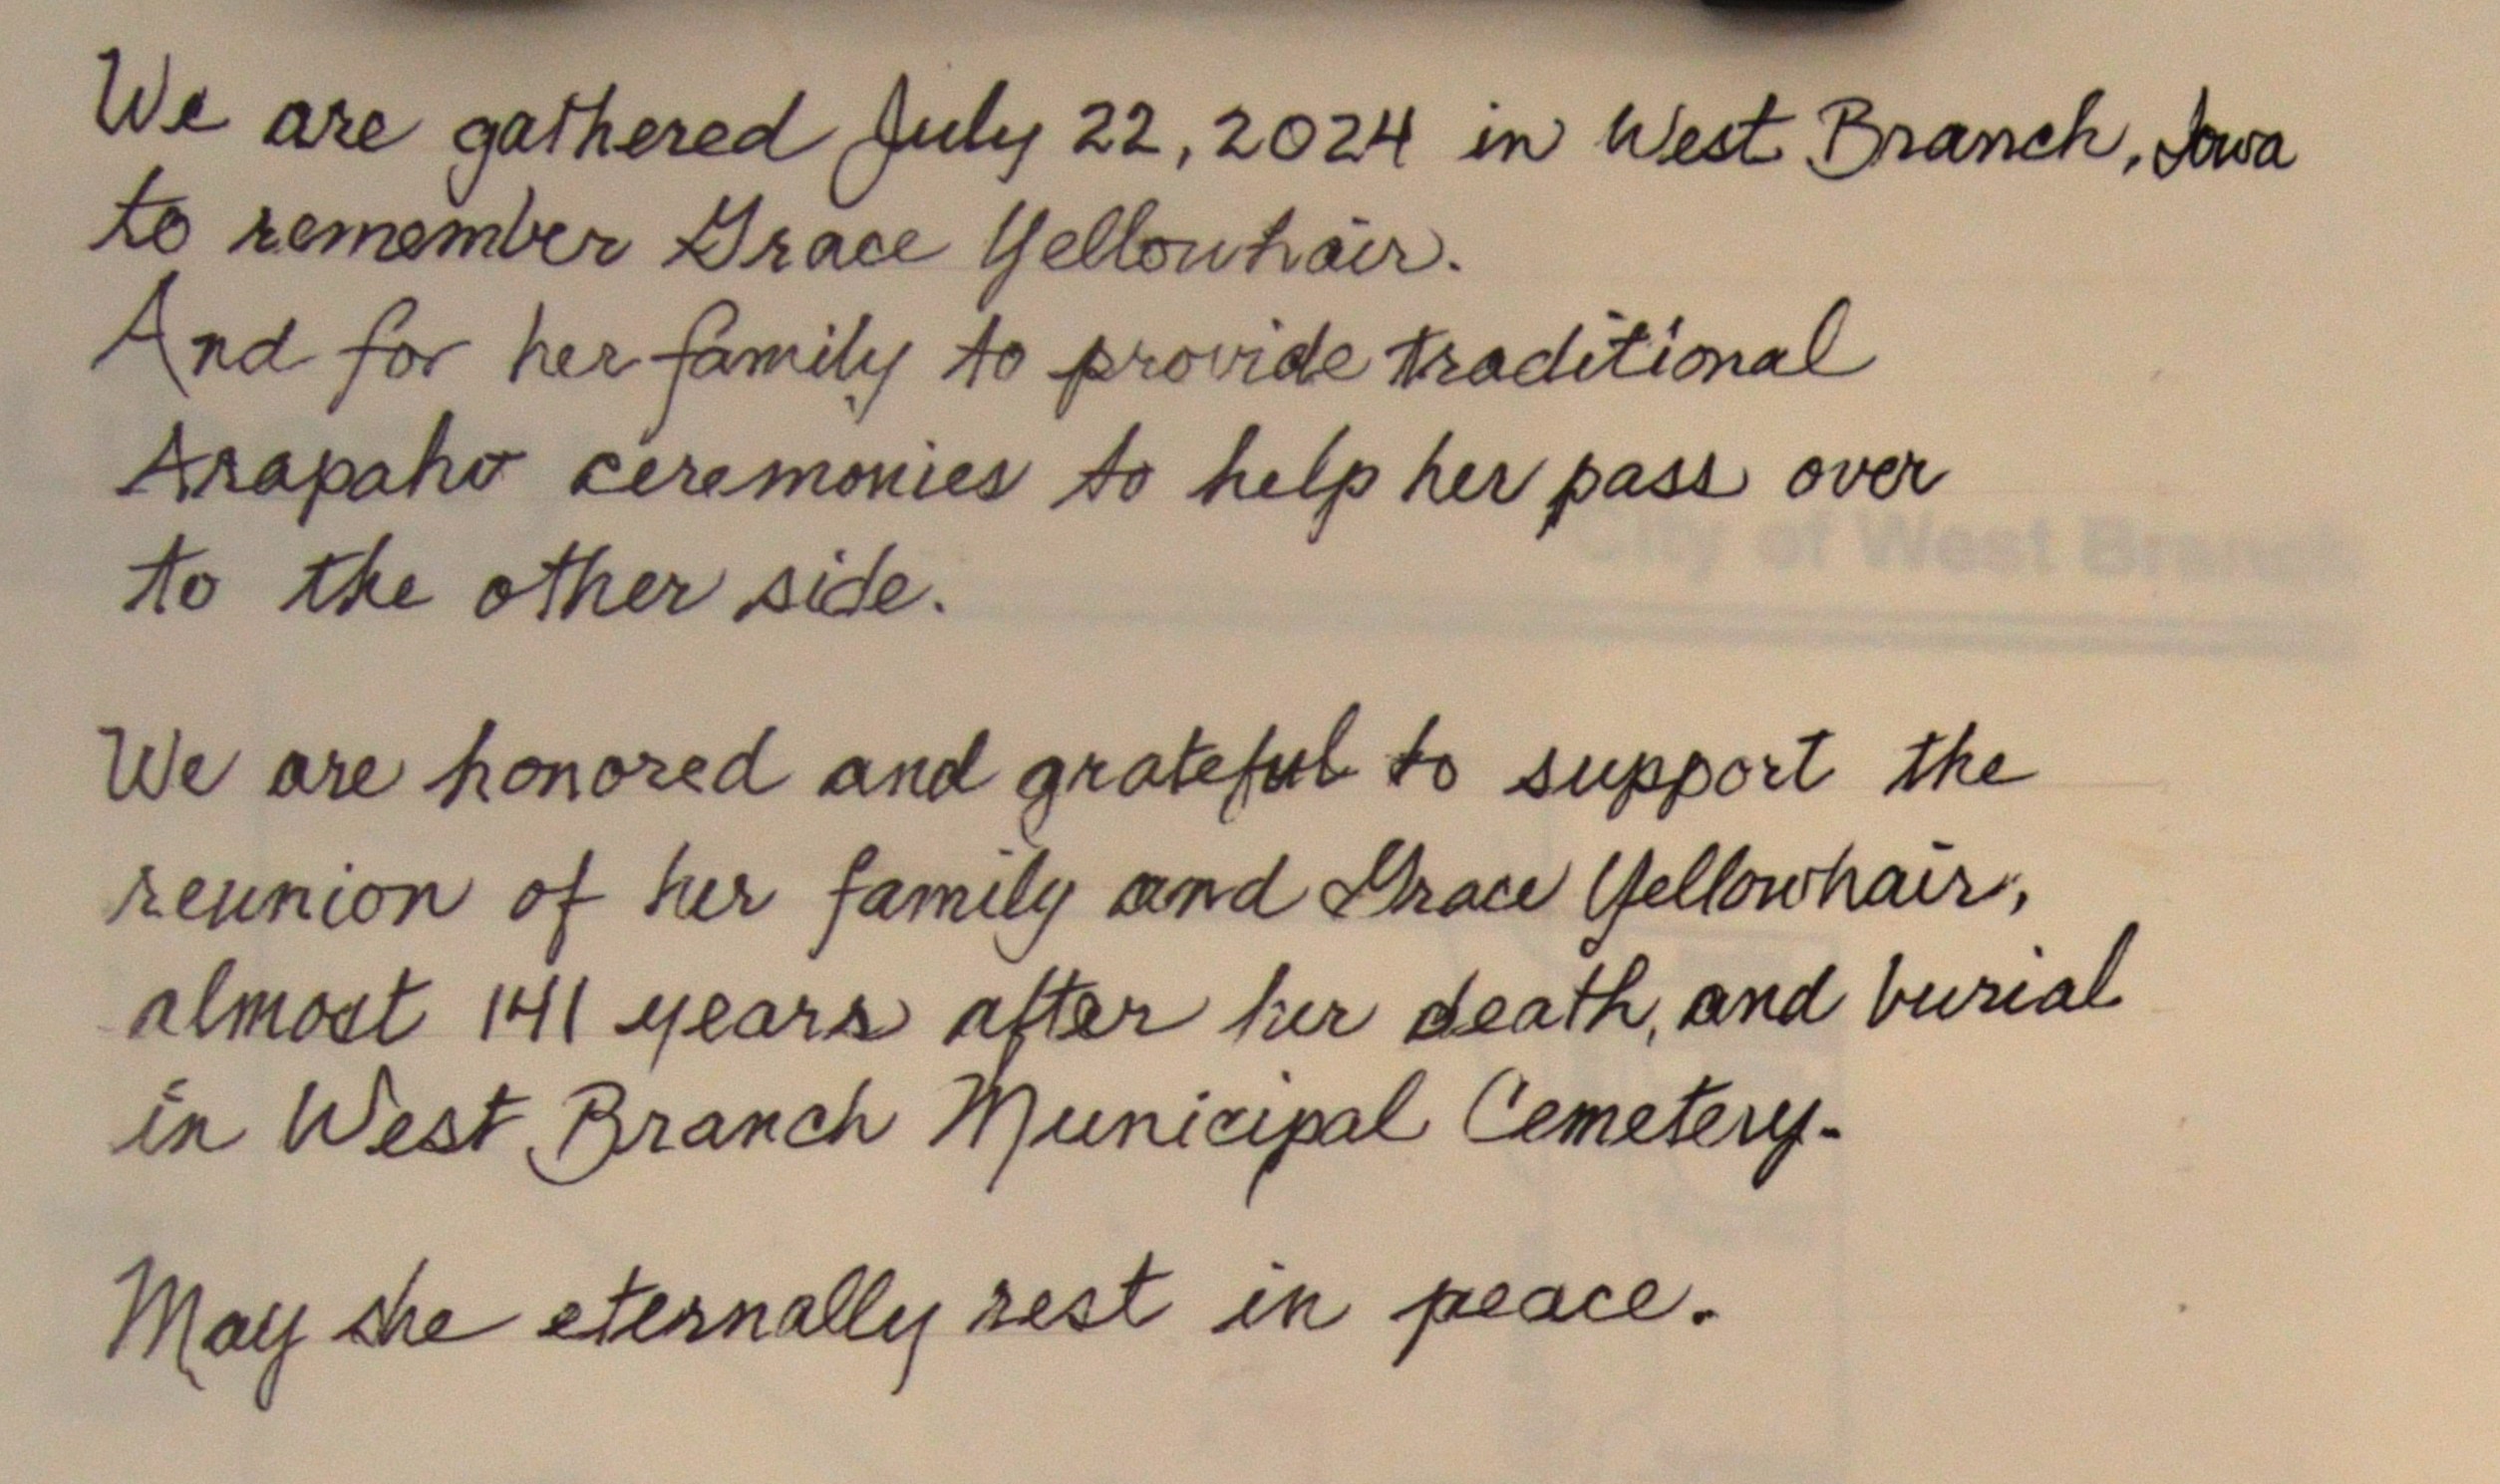 We are gathered July 22, 2024 in West Branch, Iowa
to remember Grace Yellowhair.
And for her family to provide traditional
Arapaho ceremonies to help her pass over
City of West Branch
to the other side.
We are honored and grateful to support the
reunion of her family and Grace Yellowhair,
almost 141 years after her death, and burial
in West Branch Municipal Cemetery.
May she eternally rest in peace.